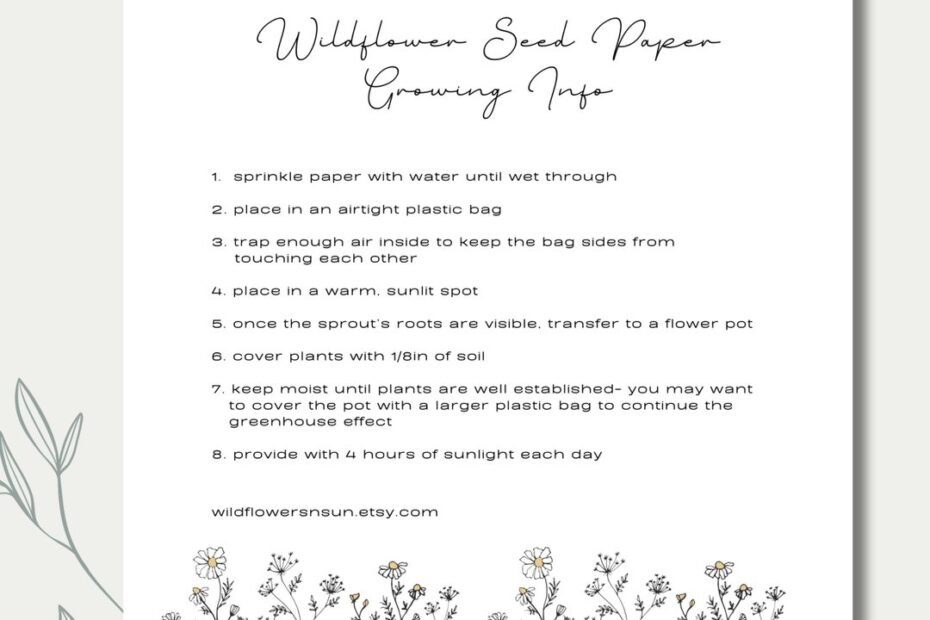 Wildflower Seed Paper
Growing Info
1. sprinkle paper with water until wet through
2. place in an airtight plastic bag
3. trap enough air inside to keep the bag sides from
touching each other
4. place in a warm, sunlit spot
5. once the sprout's roots are visible, transfer to a flower pot
6. cover plants with 1/8in of soil
7. keep moist until plants are well established- you may want
to cover the pot with a larger plastic bag to continue the
greenhouse effect
8. provide with 4 hours of sunlight each day
wildflowersnsun.etsy.com